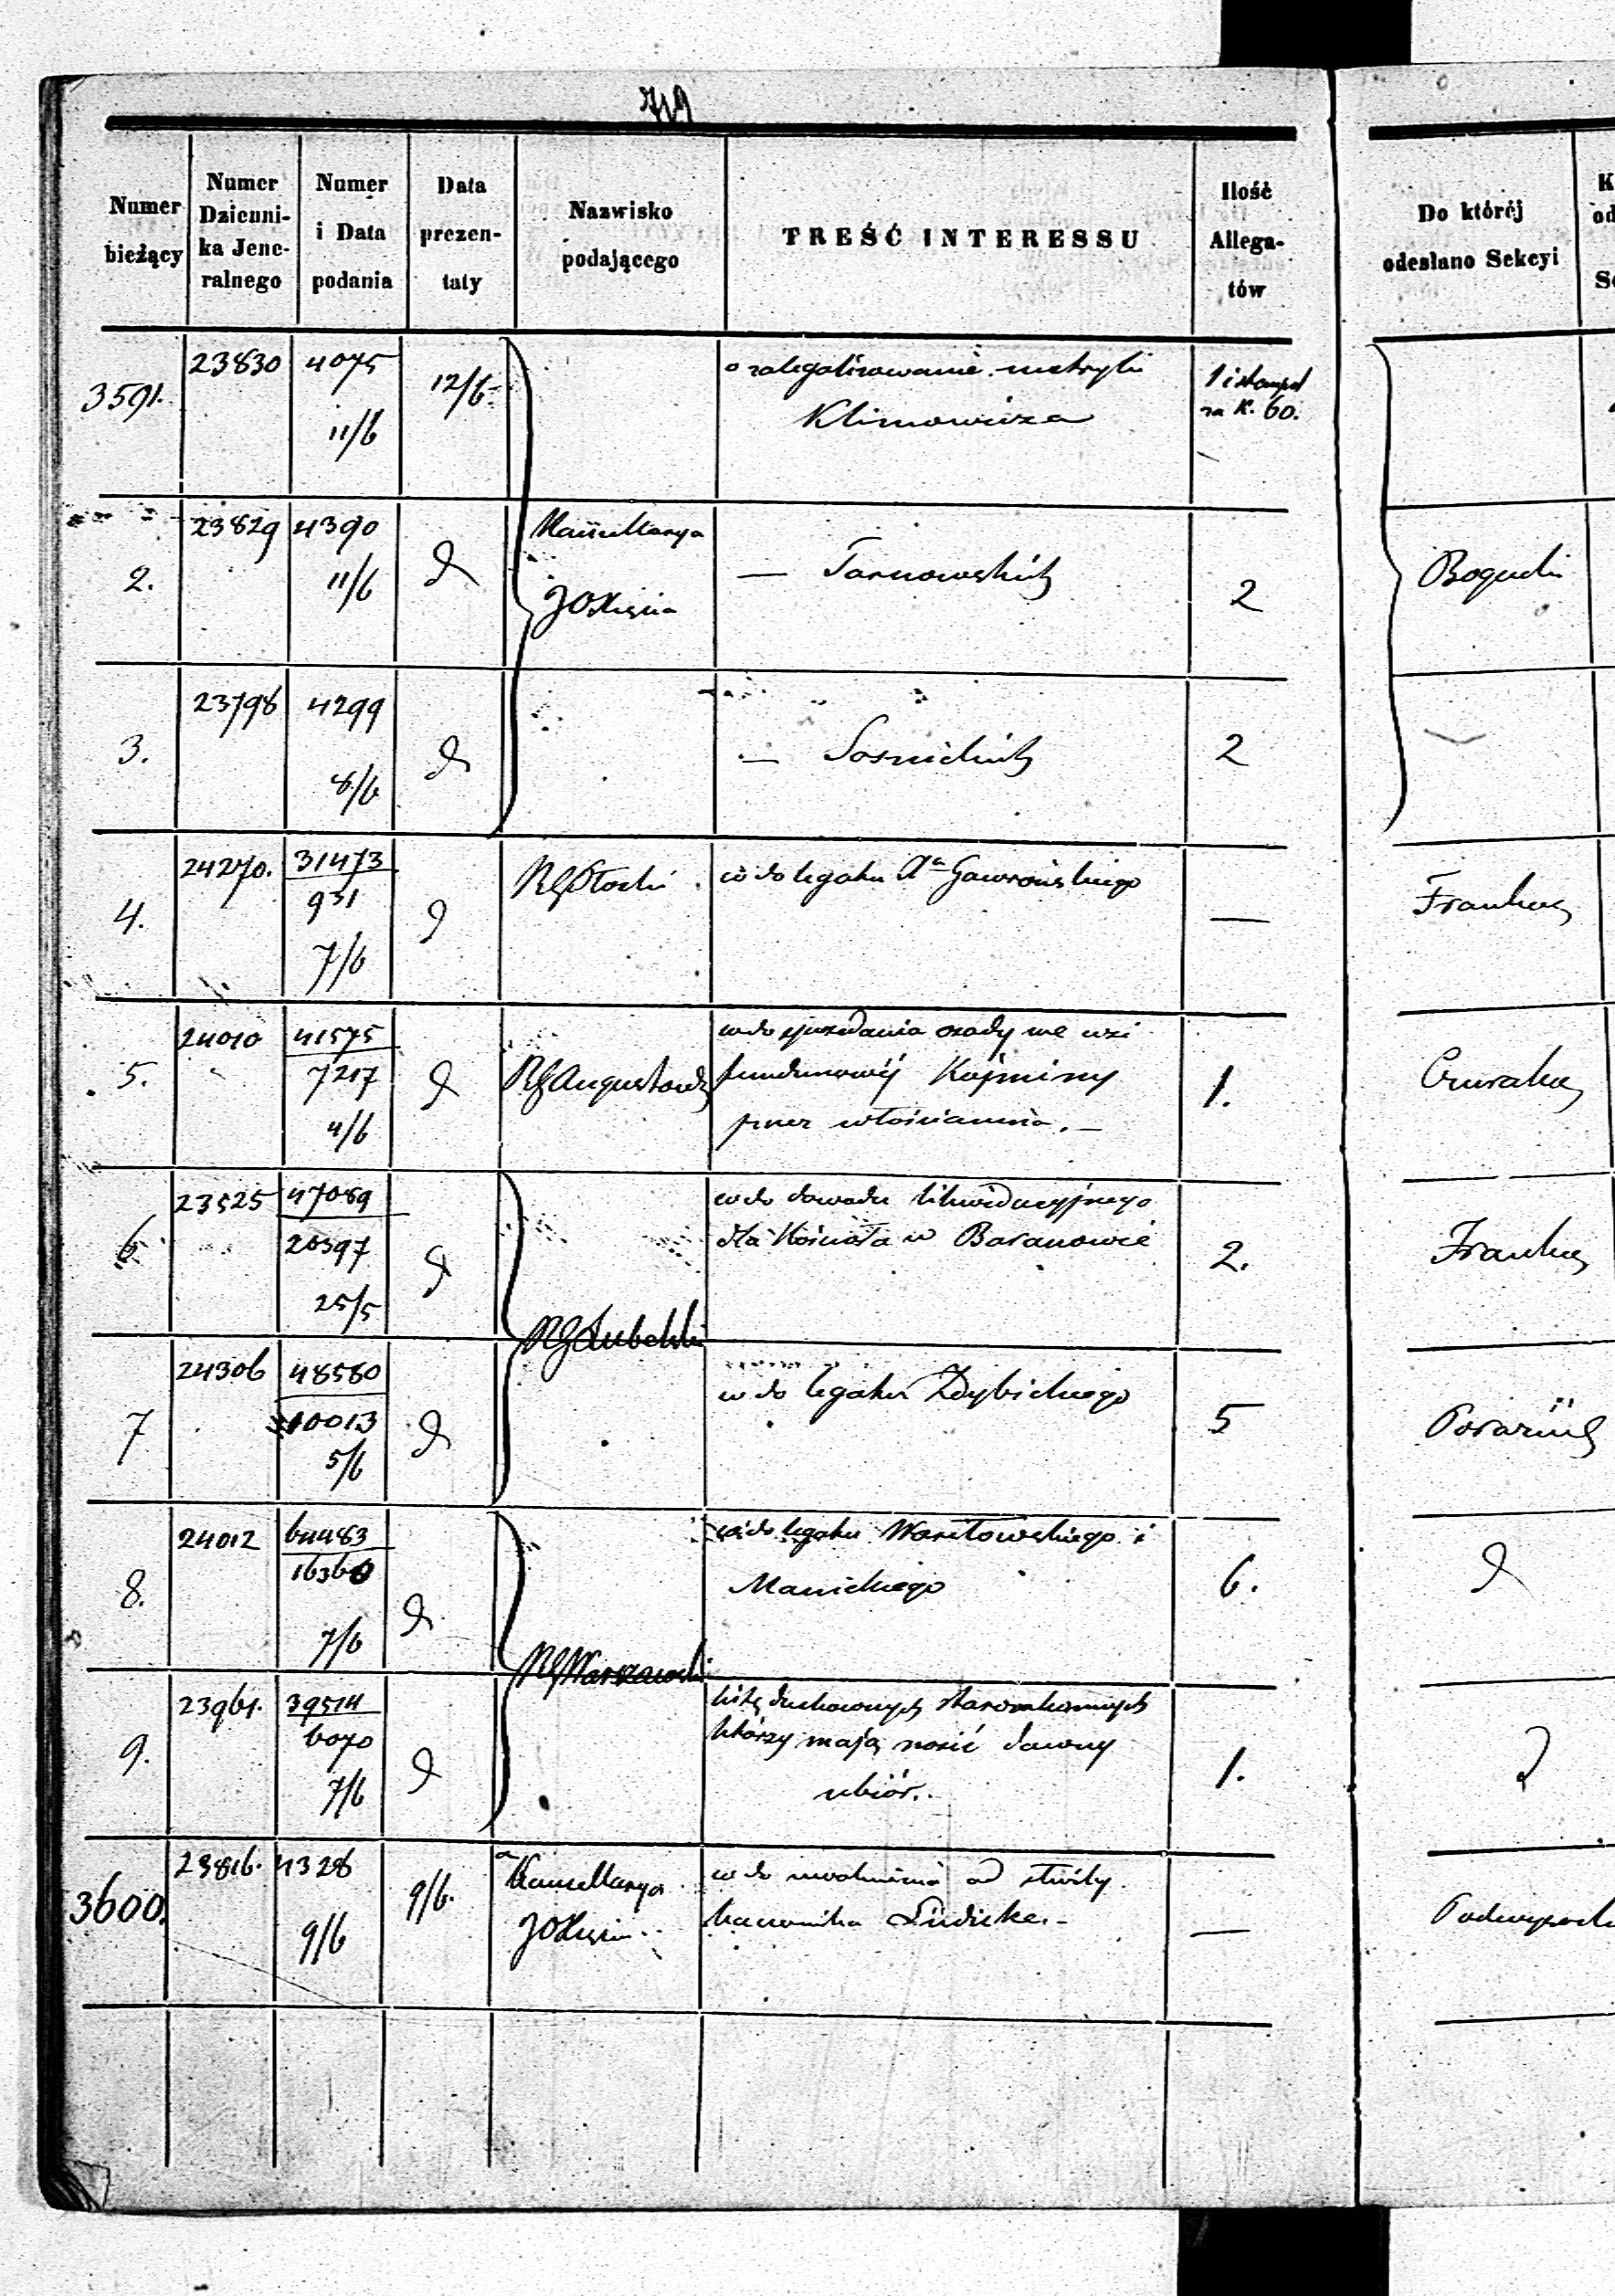 719
Numer bieżący | Numer Dzienni-ka Jene-ralnego | Numer i Data podania | Data prezen-taty | Nazwisko podającego | TREŚĆ INTERESSU | Ilość Allega-tów | Do którćj odesłano Sekcyi
3591. | 23830 | 4075 11/6 | 12/6 | | o zalegalizowanie metryki Klimowicza | 1 i stempel za K. 60.
2. | 23829 | 4390 11/6 | d | Kancellarya JOXięcia | — Tarnowskich | 2 | Bogucki
3. | 23798 | 4299 8/6 | d | | — Sosnickich | 2
4. | 24270. | 31473 931 7/6 | d | RG Płocki | w do legatu Gawrońskiego | —
5. | 24010 | 41575 7217 4/6 | d | RG Augustowski | w do posiadania osady we wsi Kopniny przez włościanina. — | 1.
6 | 23525 | 47089 20397 25/5 | d | RG Lubelski | w do dowodu likwidacyjnego dla Kościoła w Baranowie | 2.
7 | 24306 | 48580 10013 5/6 | d | | w do legatu Zdybickiego | 5
8. | 24012 | 64483 16360 7/6 | d | RG Warszawski | w do legatu i Manickiego | 6. | d
9. | 23961. | 39514 6070 7/6 | d | | listę duchownych starozakonnych którzy mają nosić dawny ubiór. | 1. | d
3600. | 23816. | 4328 9/6 | 9/6. | Kancellarya JOXięcia | w do uwolnienia od służby kanonika | —